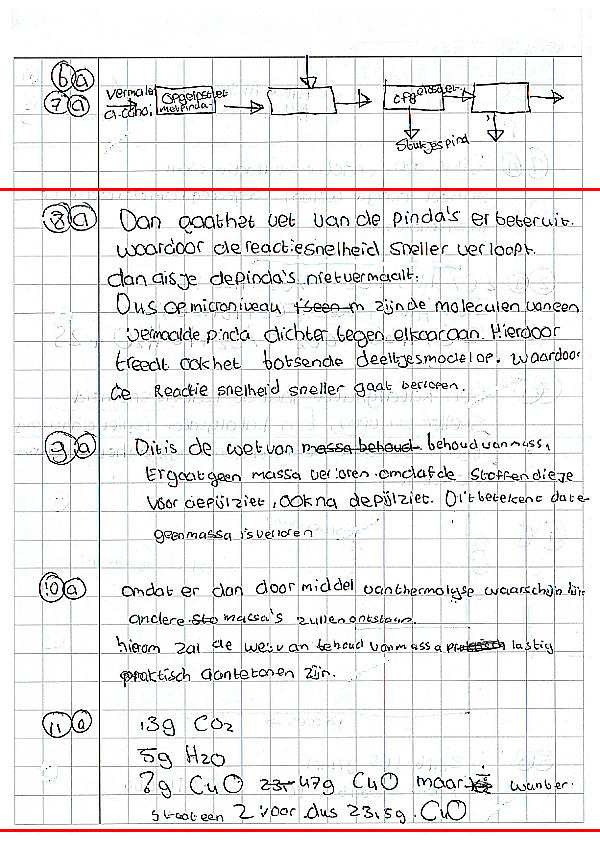 6a
7a vermale opgelosdet opgelosdet
alcohol met pinda
Stukjes pind
8a Dan gaat het vet van de pinda's er beter uit.
waardoor de reactiesnelheid sneller verloopt.
dan als je de pinda's niet vermaalt.
Dus op microniveau zijn de moleculen van een
vermaalde pinda dichter tegen elkaar aan. Hierdoor
treedt ook het botsende deeltjesmodel op. waardoor
de Reactie snelheid sneller gaat verlopen.
9a Dit is de wet van massa behoud behoud van massa
Er gaat geen massa verloren omdat de stoffen die je
voor de pijl ziet, ook na de pijl ziet. Dit betekent dat er
geen massa is verloren
10a omdat er dan door middel van thermolyse waarschijnlijk
andere sto massa's zullen ontstaan.
hierom zal de wet van behoud van massa lastig
praktisch aantetonen zijn.
11a 13g CO2
5g H2O
?g CuO 23,- 47g CuO maar want er
staat een 2 voor dus 23,5g. CuO